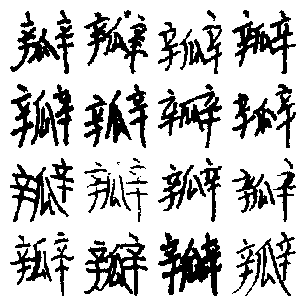 瓣瓣瓣瓣
瓣瓣瓣瓣
瓣瓣瓣瓣
瓣瓣瓣瓣